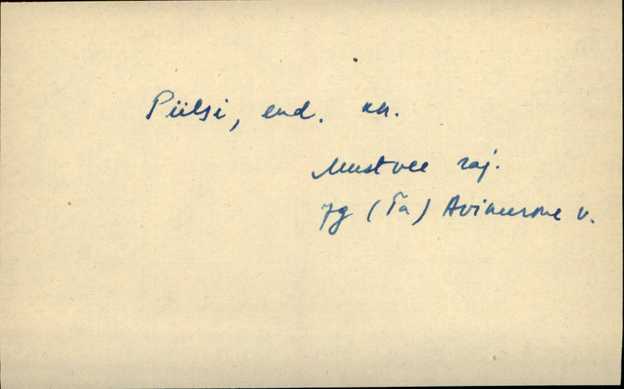 Piilsi, end. kn.
Mustvee raj.
Jg (Ta) Avinurme v.